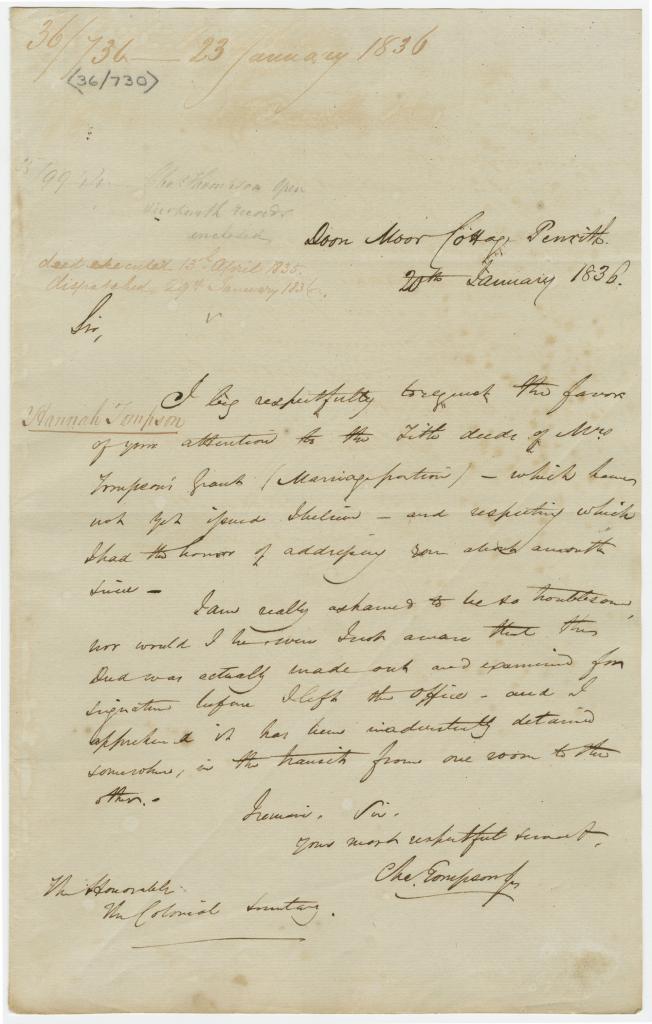 36/736 — 23 January 1836
(36/730)
Chas Thompson
enclosed
deed executed 13th April 1835.
dispatched 29th January 1836.
Doon Moor Cottage Penrith.
20th January 1836.
Sir,
I beg respectfully to request the favor
Hannah Tompson
of your attention to the Title deeds of Mrs
Tompson's Grant (Marriage portion) — which have
not yet issued I believe — and respecting which
I had the honor of addressing you about a month
since —
I am really ashamed to be so troublesome,
nor would I be, were I not aware that this
Deed was actually made out and examined for
signature before I left the office — and I
apprehend it has been inadvertently detained
somewhere, in the transit from one room to the
other. —
I remain, Sir.
Your most respectful servant,
Chs. Tompson Jr
The Honorable
The Colonial Secretary.